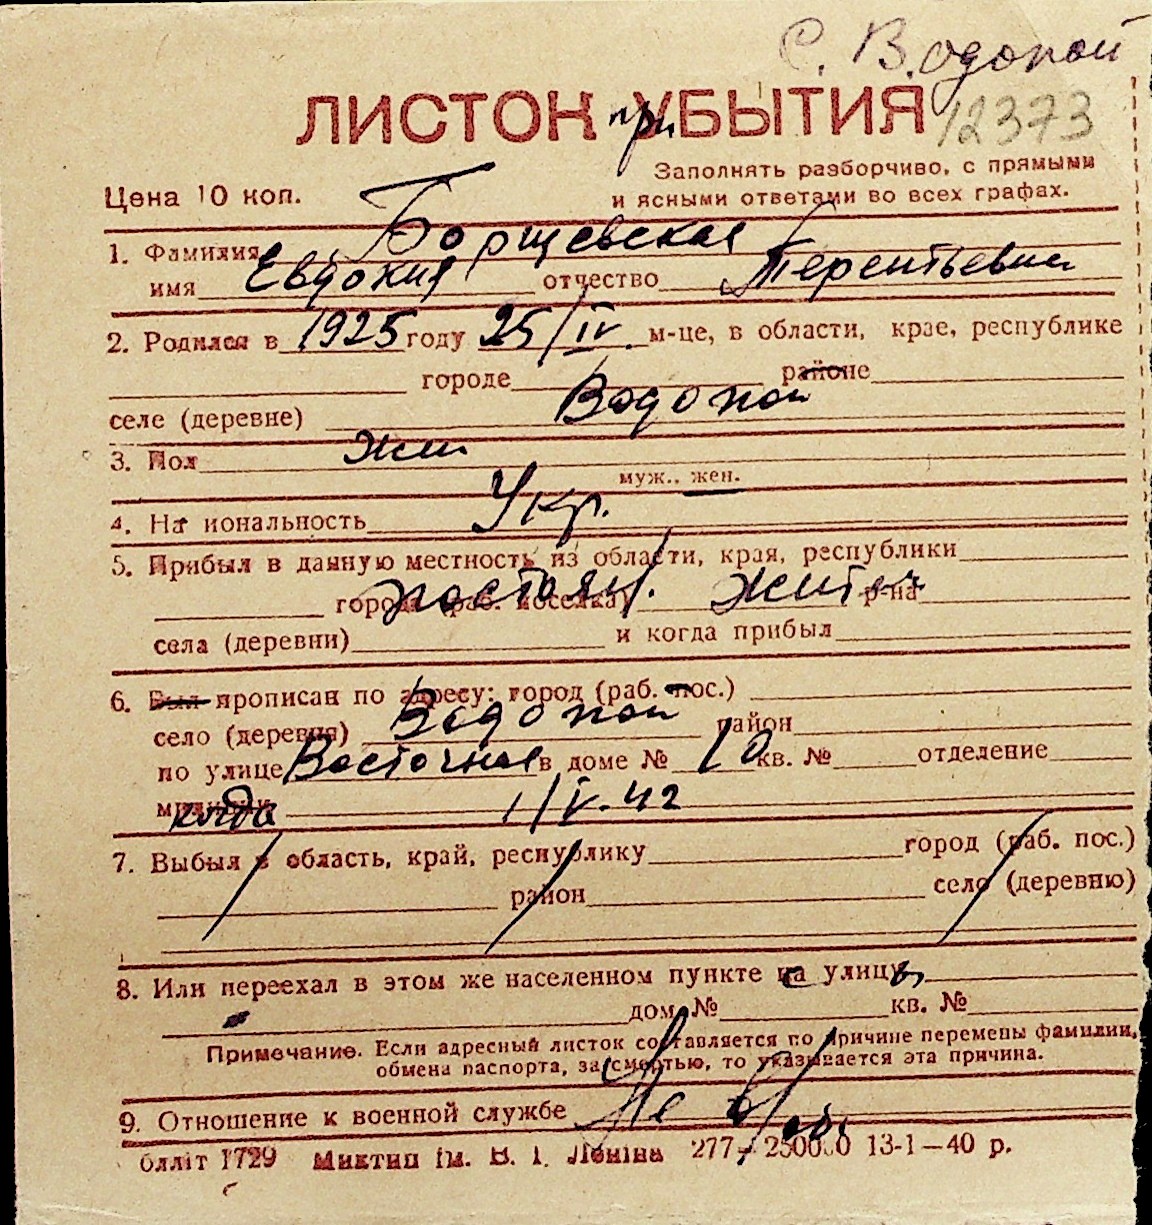 С. Водопой
ЛИСТОК при УБЫТИЯ 12373
Заполнять разборчиво, с прямыми
Цена 10 коп. и ясными ответами во всех графах.
1. Фамилия Борщевская
имя Евдокия отчество Терентьевна
2. Родился в 1925 году 25/IV м-це, в области, крае, республике
городе районе
селе (деревне) Водопой
3. Пол жен
муж., жен.
4. На иональность Укр.
5. Прибыл в данную местность из области, края, республики
города (раб. поселка) постоян. житель р-на
села (деревни) и когда прибыл
6. Был прописан по адресу: город (раб. пос.)
село (деревня) Водопой район
по улице Восточная в доме № 10 кв. № отделение
милиции когда 1/IV-42
7. Выбыл в область, край, республику город (раб. пос.)
район село (деревню)
8. Или переехал в этом же населенном пункте с улицы
дом № кв. №
Примечание. Если адресный листок составляется по причине перемены фамилии,
обмена паспорта, за смертью, то указывается эта причина.
9. Отношение к военной службе Не в/об.
бліт 1729 Миктип ім. В. І. Леніна 277—250000 13-1—40 р.